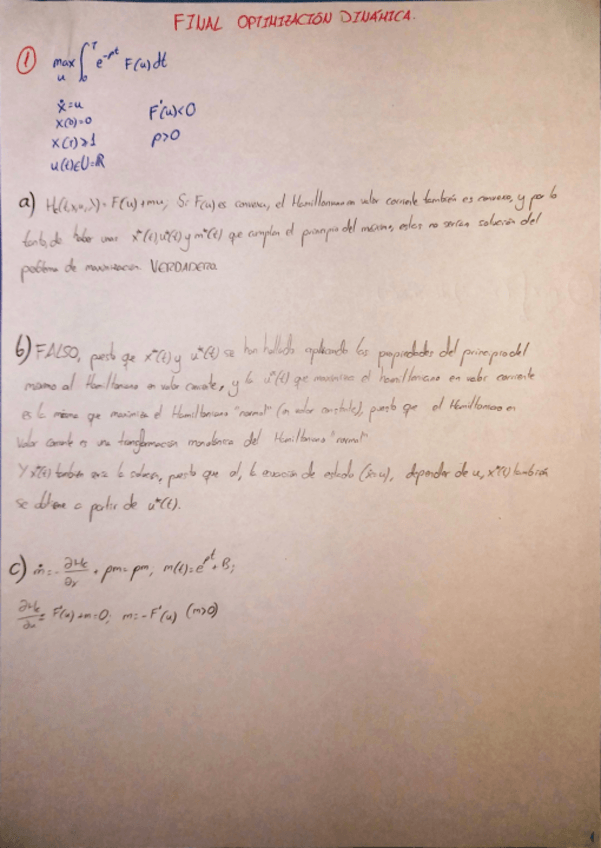 FINAL OPTIMIZACIÓN DINÁMICA.
① max ∫₀ᵀ e^-ρt F(u)dt
u
ẋ=u F'(u)<0
x(0)=0 ρ>0
x(T)≥1
u(t)∈U=ℝ
a) Hc(t,x,u,λ)= F(u)+mu; Si F(u) es convexa, el Hamiltoniano en valor corriente también es convexo, y por lo
tanto, de haber unas x*(t), u*(t) y m*(t) que cumplan el principio del máximo, estas no serían solución del
problema de maximización. VERDADERO.
b) FALSO, puesto que x*(t) y u*(t) se han hallado aplicando las propiedades del principio del
máximo al Hamiltoniano en valor corriente, y la u*(t) que maximiza el Hamiltoniano en valor corriente
es la misma que maximiza el Hamiltoniano "normal" (en valor ), puesto que el Hamiltoniano en
valor corriente es una transformación monótona del Hamiltoniano "normal"
Y x*(t) también será la , puesto que al, la ecuación de estado (ẋ=u), depender de u, x*(t) también
se obtiene a partir de u*(t).
c) ṁ=-∂Hc/∂x + ρm= ρm; m(t)=e^ρt + B;
∂Hc/∂u = F'(u)+m=0; m=-F'(u) (m>0)